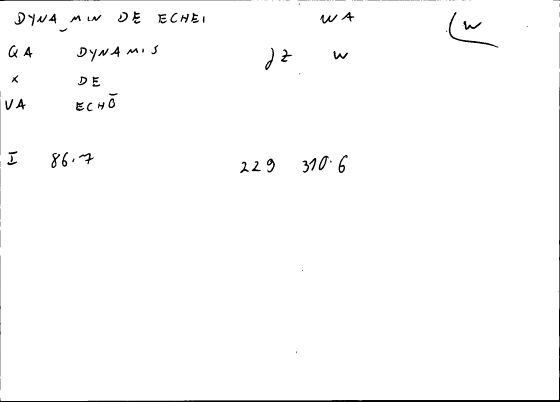 DYNA_MIN DE ECHEI WA (W
QA DYNAMIS JZ W
X DE
VA ECHŌ
I 86.7 229 310.6